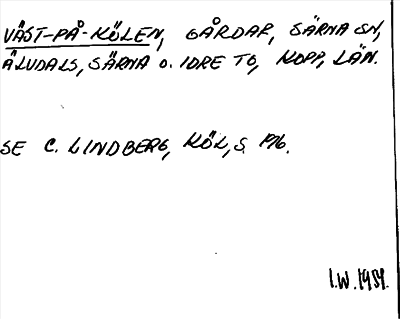 VÄST-PÅ-KÖLEN, GÅRDAR, SÄRNA SN,
ÄLVDALS, SÄRNA O. IDRE TG, KOPP, LÄN.
SE C. LINDBERG, KÖL, S.
I.W. 1959.